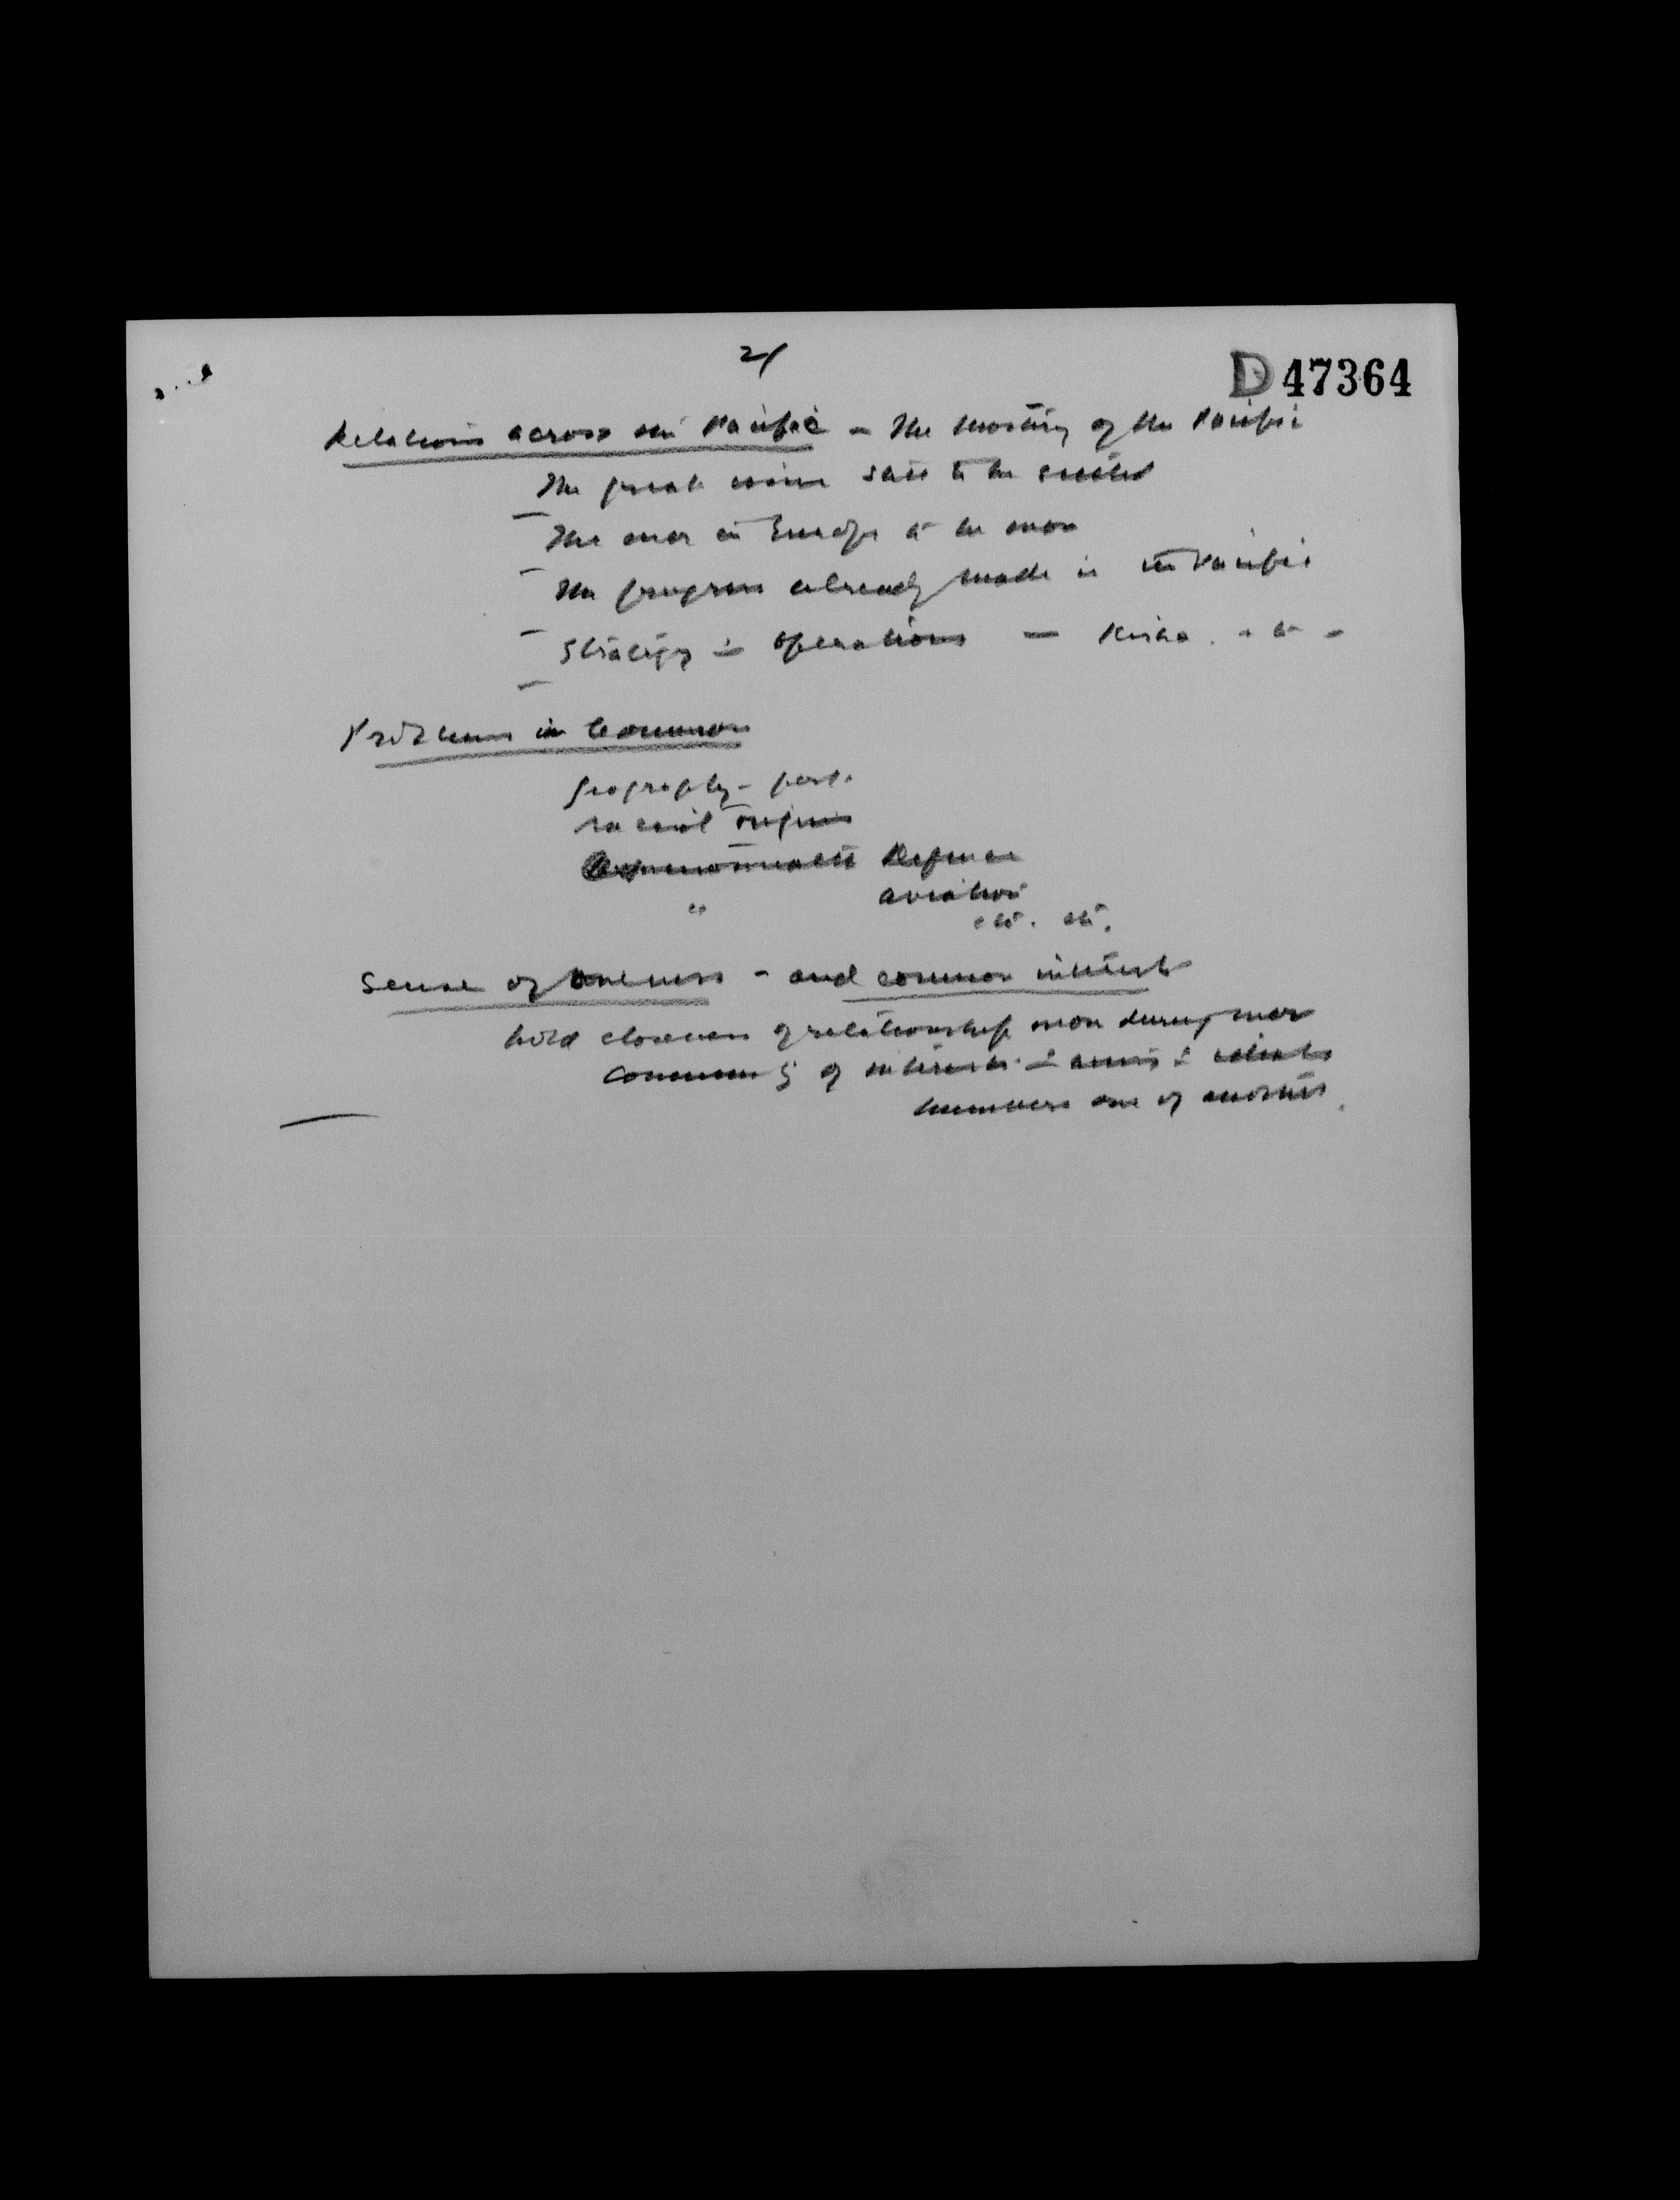 2/
D 47364
Relations across the Pacific – The meeting of the Pacific
The great issue still to be settled
The war in Europe to be won
The progress already made in the Pacific
Strategy & operations — Kiska
Problems in Common
geography – past.
racial origins
Commonwealth Defence
" aviation
etc. etc.
Sense of oneness – and common interests
hold closeness of relationship won during war
Community of interests & aims & ideals
members one of another.